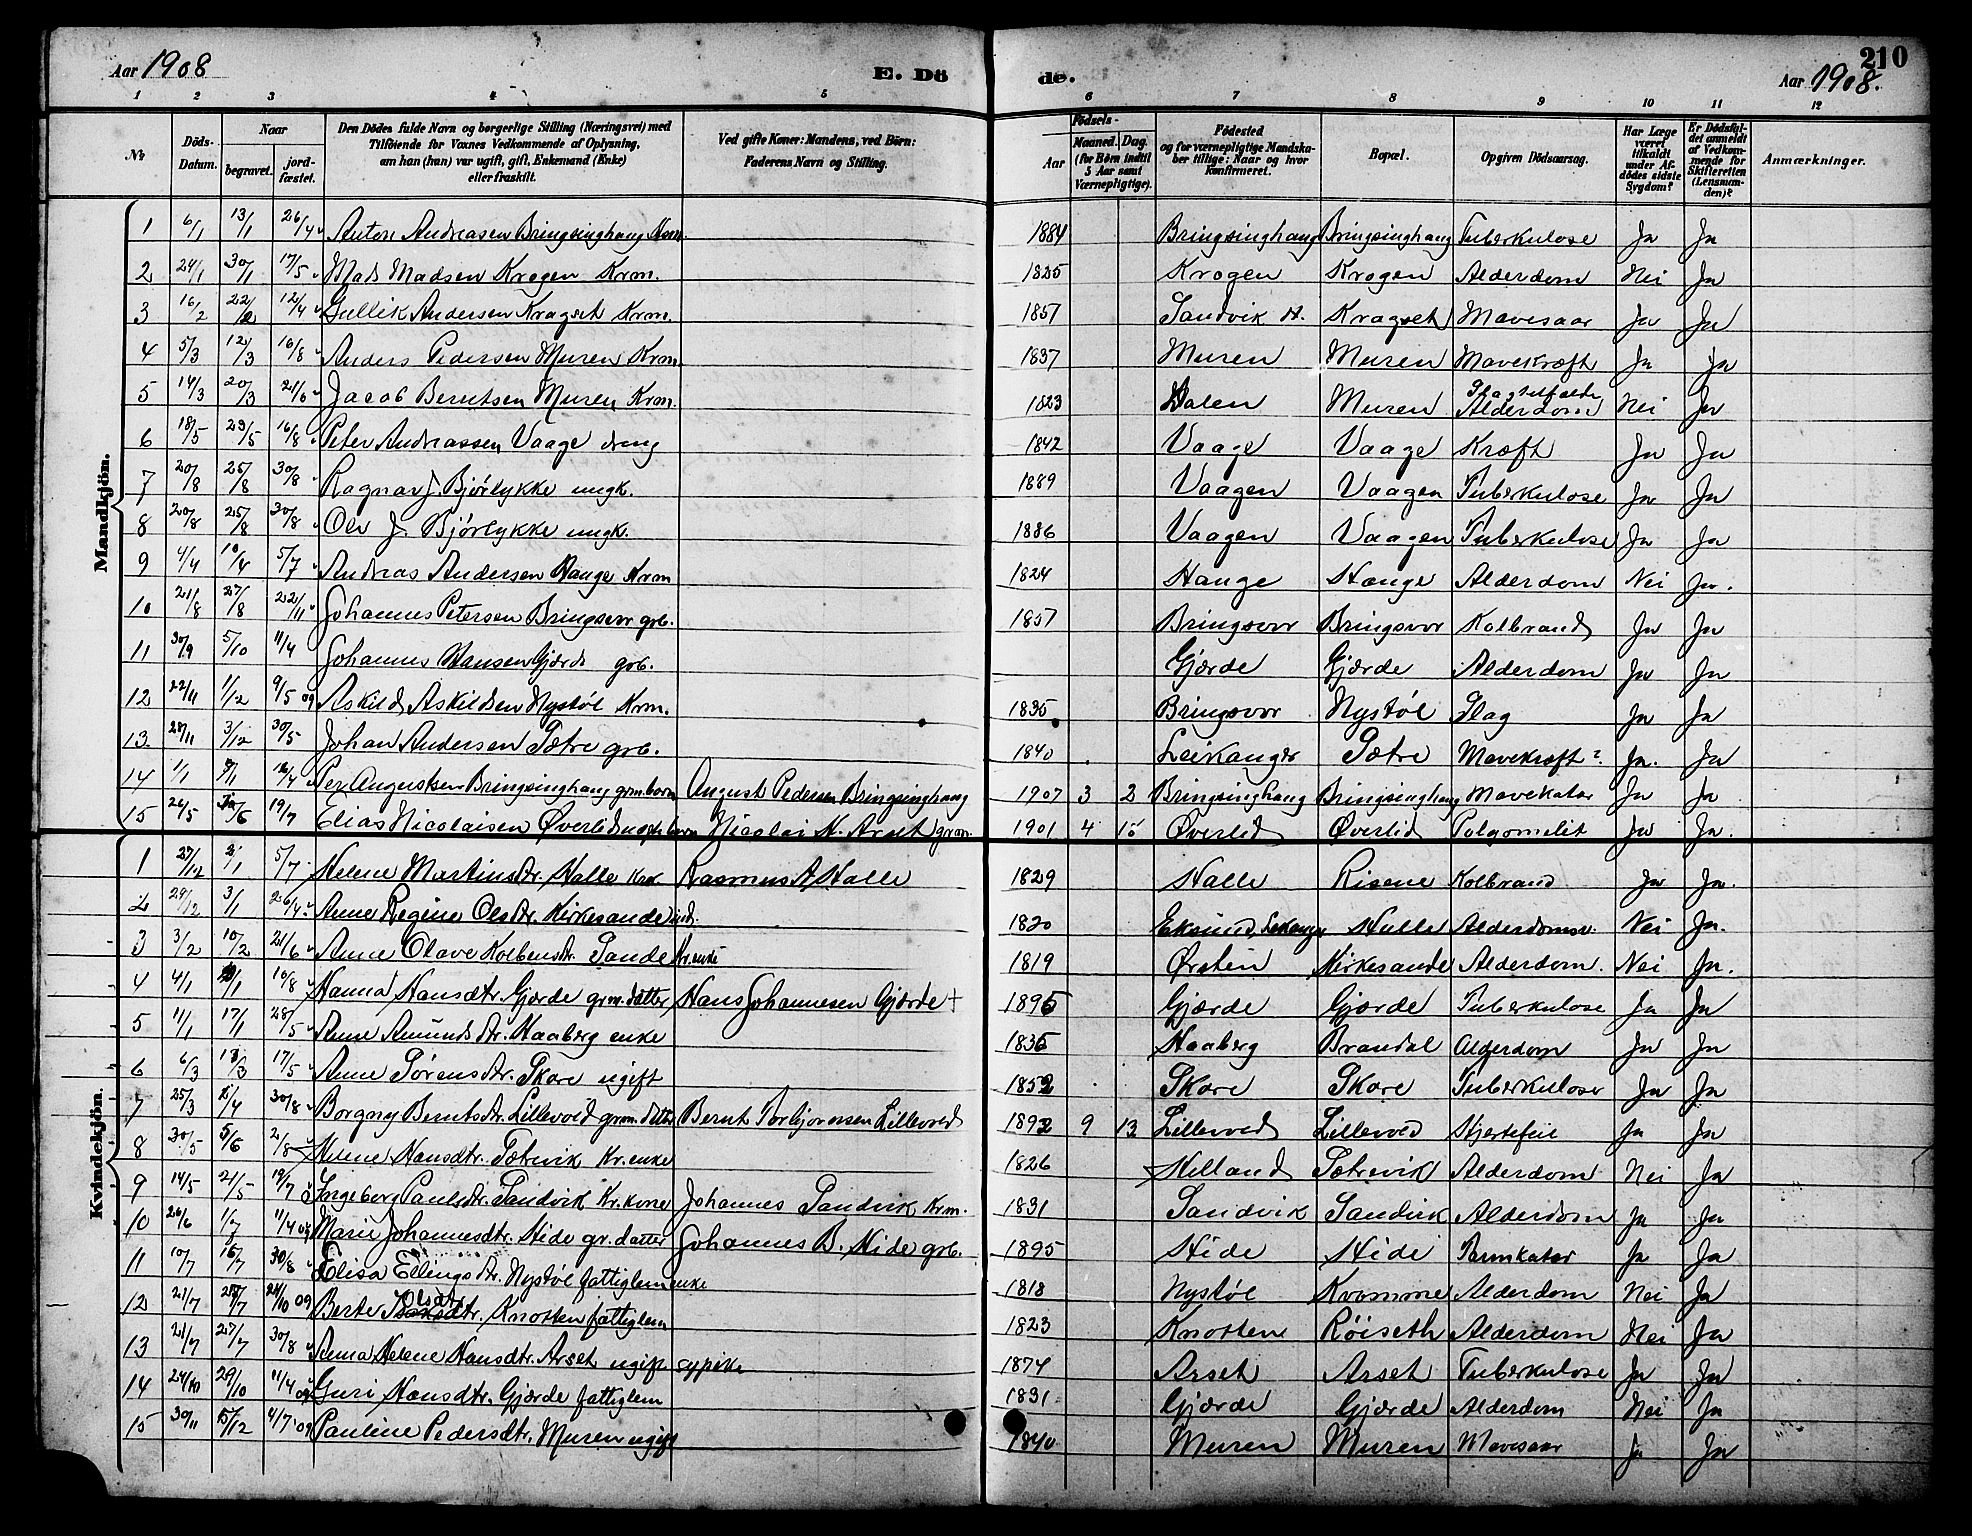 210
Aar 1908
E. Dö
de.
Aar 1908.
1 2 3 4 5 6 7 8 9 10 11 12
No
Döds-Datum.
Naar
begravet.
jord-fæstet.
Den Dödes fulde Navn og borgerlige Stilling (Næringsvei) med Tilföiende for Voxnes Vedkommende af Oplysning, om han (hun) var ugift, gift, Enkemand (Enke) eller fraskilt.
Ved gifte Koner: Mandens, ved Börn: Faderens Navn og Stilling.
Födsels-
Aar
Maaned. Dag.
(for Börn indtil 5 Aar samt Værnepligtige).
Födested og for værnepligtige Mandskaber tillige: Naar og hvor konfirmeret.
Bopæl.
Opgiven Dödsaarsag.
Har Læge været tilkaldt under Afdödes sidste Sygdom?
Er Dödsfaldet anmeldt af Vedkommende for Skifteretten (Lensmanden)?
Anmærkninger.
Mandkjön.
1 6/1 13/1 26/4 Anton Andreasen Bringsinghaug Krm. 1884 Bringsinghaug Bringsinghaug Tuberkulose Ja Ja
2 24/1 30/1 17/5 Mads Madsen Krogen Krm. 1825 Krogen Krogen Alderdom Nei Ja
3 16/2 22/2 12/4 Gullik Andersen Kragset Krm. 1857 Sandvik H. Kragset Mavesaar Ja Ja
4 5/3 12/3 16/8 Anders Pedersen Muren Krm. 1837 Muren Muren Mavekræft Ja Ja
5 14/3 20/3 21/6 Jacob Berntsen Muren Krm. 1823 Dalen Muren Slagtilfælde Alderdom Nei Ja
6 18/5 23/5 16/8 Peter Andreassen Vaage dreng 1842 Vaage Vaage Kræft Ja Ja
7 20/8 25/8 30/8 Ragnar J. Bjørlykke ungk. 1889 Vaagen Vaagen Tuberkulose Ja Ja
8 20/8 25/8 30/8 Ole J. Bjørlykke ungk. 1886 Vaagen Vaagen Tuberkulose Ja Ja
9 4/4 10/4 5/7 Andreas Andersen Hauge Krm 1824 Hauge Hauge Alderdom Nei Ja.
10 21/8 27/8 22/11 Johannes Petersen Bringsvor grb. 1857 Bringsvor Bringsvor Kolbrand Ja Ja
11 30/9 5/10 11/4 Johannes Hansen Gjærde grb. Gjærde Gjærde Alderdom Ja Ja
12 22/11 1/12 9/5 09 Askild Askildsen Nystøl Krm. 1835 Bringsvor Nystøl Slag Ja Ja
13. 28/11 3/12 30/5 Johan Andersen Sætre grb. 1840 Leikanger Sætre Mavekræft? Ja. Ja
14 1/1 Per Augustsen Bringsinghaug grm.barn August Pedersen Bringsinghaug 1907 3 2 Bringsinghaug Bringsinghaug Mavekatar Ja Ja
15 26/5 19/7 Elias Nicolaisen Øverlid barn Nicolai H. Arset grm. 1901 4 15 Øverlid Øverlid Ja Ja.
Kvindekjön.
1 27/12 2/1 5/7 Helene Martinsdtr. Halle Rasmus A. Halle 1829 Halle Risene Kolbrand Ja Ja.
2 29/12 3/1 26/4 Anne Regine Olsdtr. Kirkesande ind. 1820 Eksund, Lekanger Halle Alderdomsv. Nei Ja.
3 3/2 10/2 21/6 Anne Olave Kolbensdtr. Sande Kr.enke 1819 Ørsten Kirkesande Alderdom. Nei Ja.
4 4/1 10/8 Hanna Hansdtr. Gjærde grm.datter Hans Johannesen Gjærde + 1895 Gjærde Gjærde Tuberkulose Ja Ja
5 11/1 17/1 28/5 Anne Amundsdtr. Haaberg enke 1835 Haaberg Brandal Alderdom Ja Ja
6 6/3 13/3 17/5 Anne Sørensdtr. Skare ugift 1852 Skare Skare Tuberkulose Ja Ja
7 25/3 1/4 30/8 Borgny Berntsdtr. Lillevold grm.datter Bernt Torbjørnsen Lillevold 1892 9 13 Lillevold Lillevold Hjertefeil Ja Ja
8 30/5 5/6 2/8 Helene Hansdtr. Sætrevik Kr.enke 1826 Helland Sætrevik Alderdom Nei Ja
9 14/5 21/5 19/7 Ingeborg Paulsdtr. Sandvik Kr.kone Johannes Sandvik Krm. 1831 Sandvik Sandvik Alderdom Ja Ja
10 26/6 1/7 11/4 09 Marie Johannesdtr. Hide gr.datter Johannes B. Hide grb. 1895 Hide Hide Tarmkatar Ja Ja
11 10/7 16/7 30/8 Elisa Ellingsdtr. Nystøl fattiglem enke 1818 Nystøl Kvamme Alderdom Nei Ja
12 21/7 24/10 09 Berte Olsdtr. Knotten fattiglem 1823 Knotten Røiseth Alderdom Nei Ja
13 21/7 27/7 30/8 Anna Helene Hansdtr. Arset ugift sypike 1874 Arset Arset Tuberkulose Ja Ja
14 24/10 29/10 11/4 09 Guri Hansdtr. Gjærde fattiglem 1831 Gjærde Gjærde Alderdom Nei Ja
15 30/11 5/12 4/7 09 Pauline Pedersdtr. Muren ugift 1840 Muren Muren Mavesaar Ja Ja